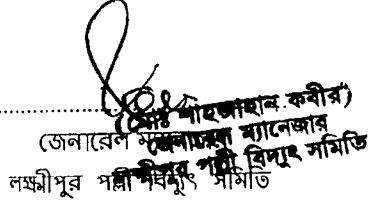 (মোঃ শাহজাহান কবীর)
জেনারেল ম্যানেজার
লক্ষ্মীপুর পল্লী বিদ্যুৎ সমিতি
জেনারেল
লক্ষ্মীপুর পল্লী বিদ্যুৎ সমিতি